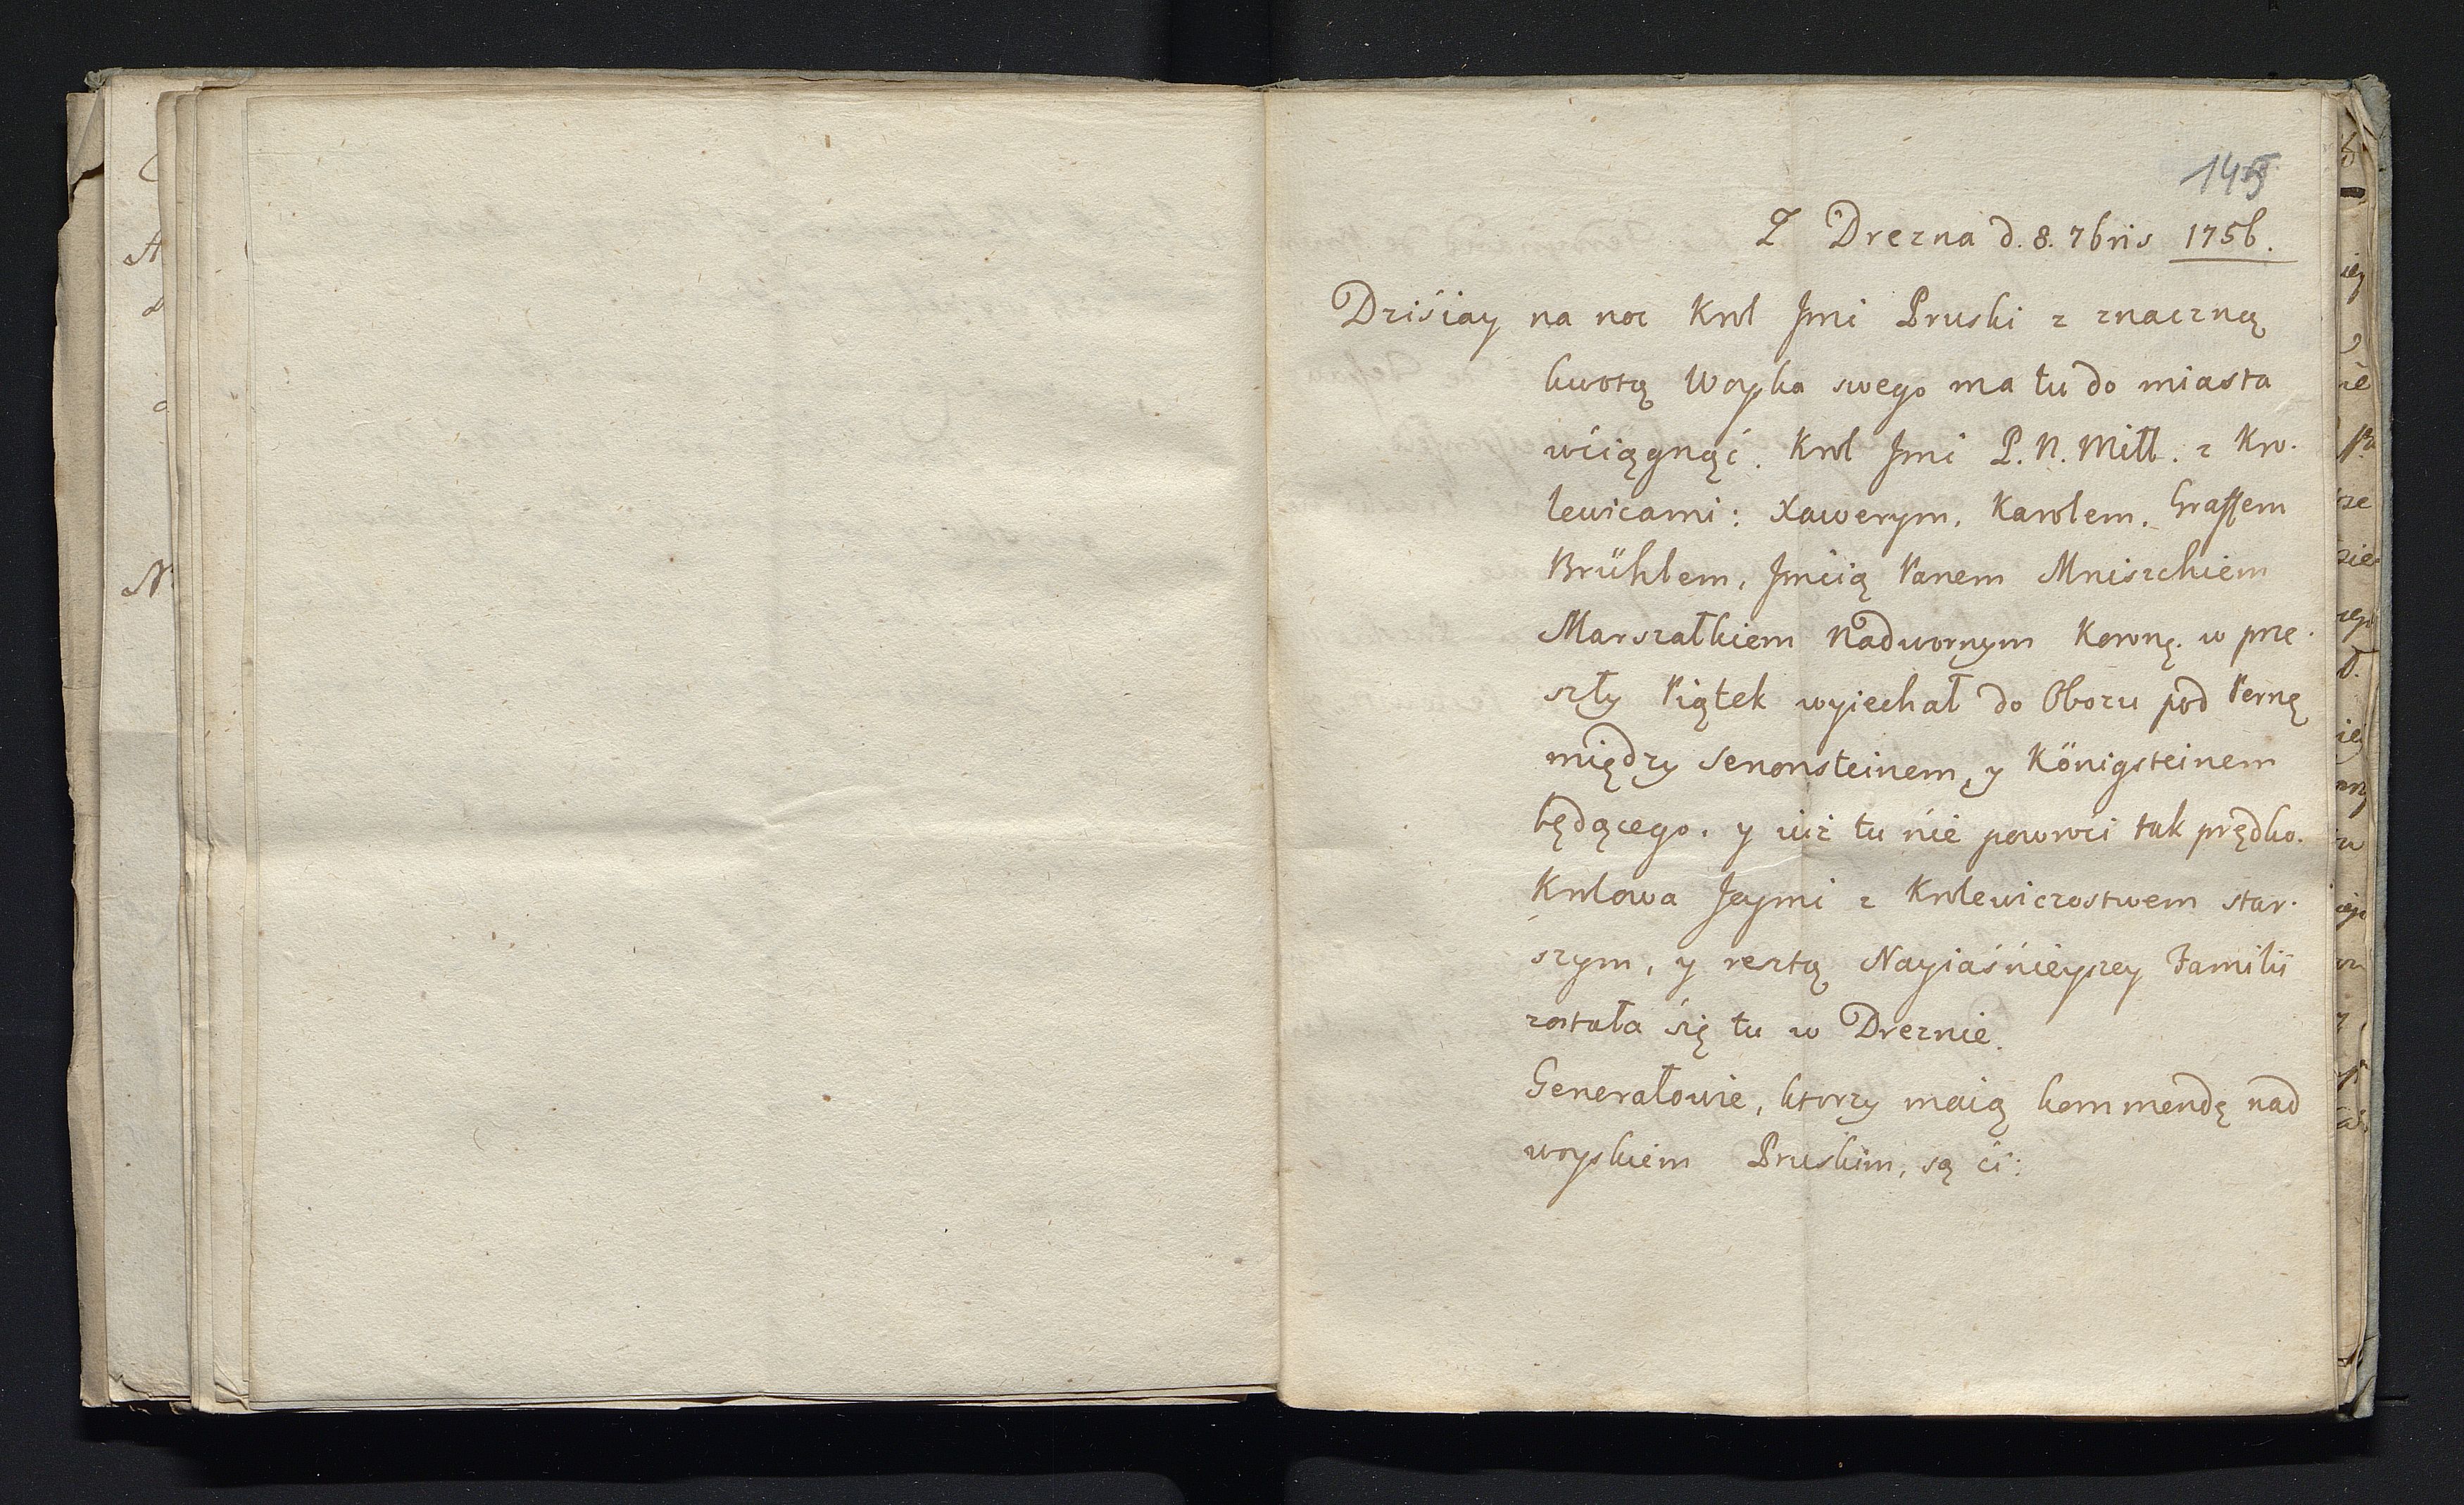 145
Z Drezna d. 8. 7bris 1756.
Dziśiay na noc Krol Jmi Pruski z znaczną
kwotą Woyska swego ma tu do miasta
wćiągnąć. Krol Jmi P. N. Miłł. z Kro-
lewicami: Xawerym, Karolem, Graffem
Brühlem, Jmćią Panem Mniszchiem
Marszałkiem Nadwornym Koronę. w prze-
szły Piątek wyiechał do Obozu pod Pernę
między Senonsteinem, y Königsteinem
będącego. y iuż tu nie powroći tak prędko.
Krolowa Jeymi z Krolewiczostwem star-
szym, y resztą Nayiaśnieyszey Familii
została się tu w Dreznie.
Generałowie, ktorzy maią kommendę nad
woyskiem Pruskim, są ći: